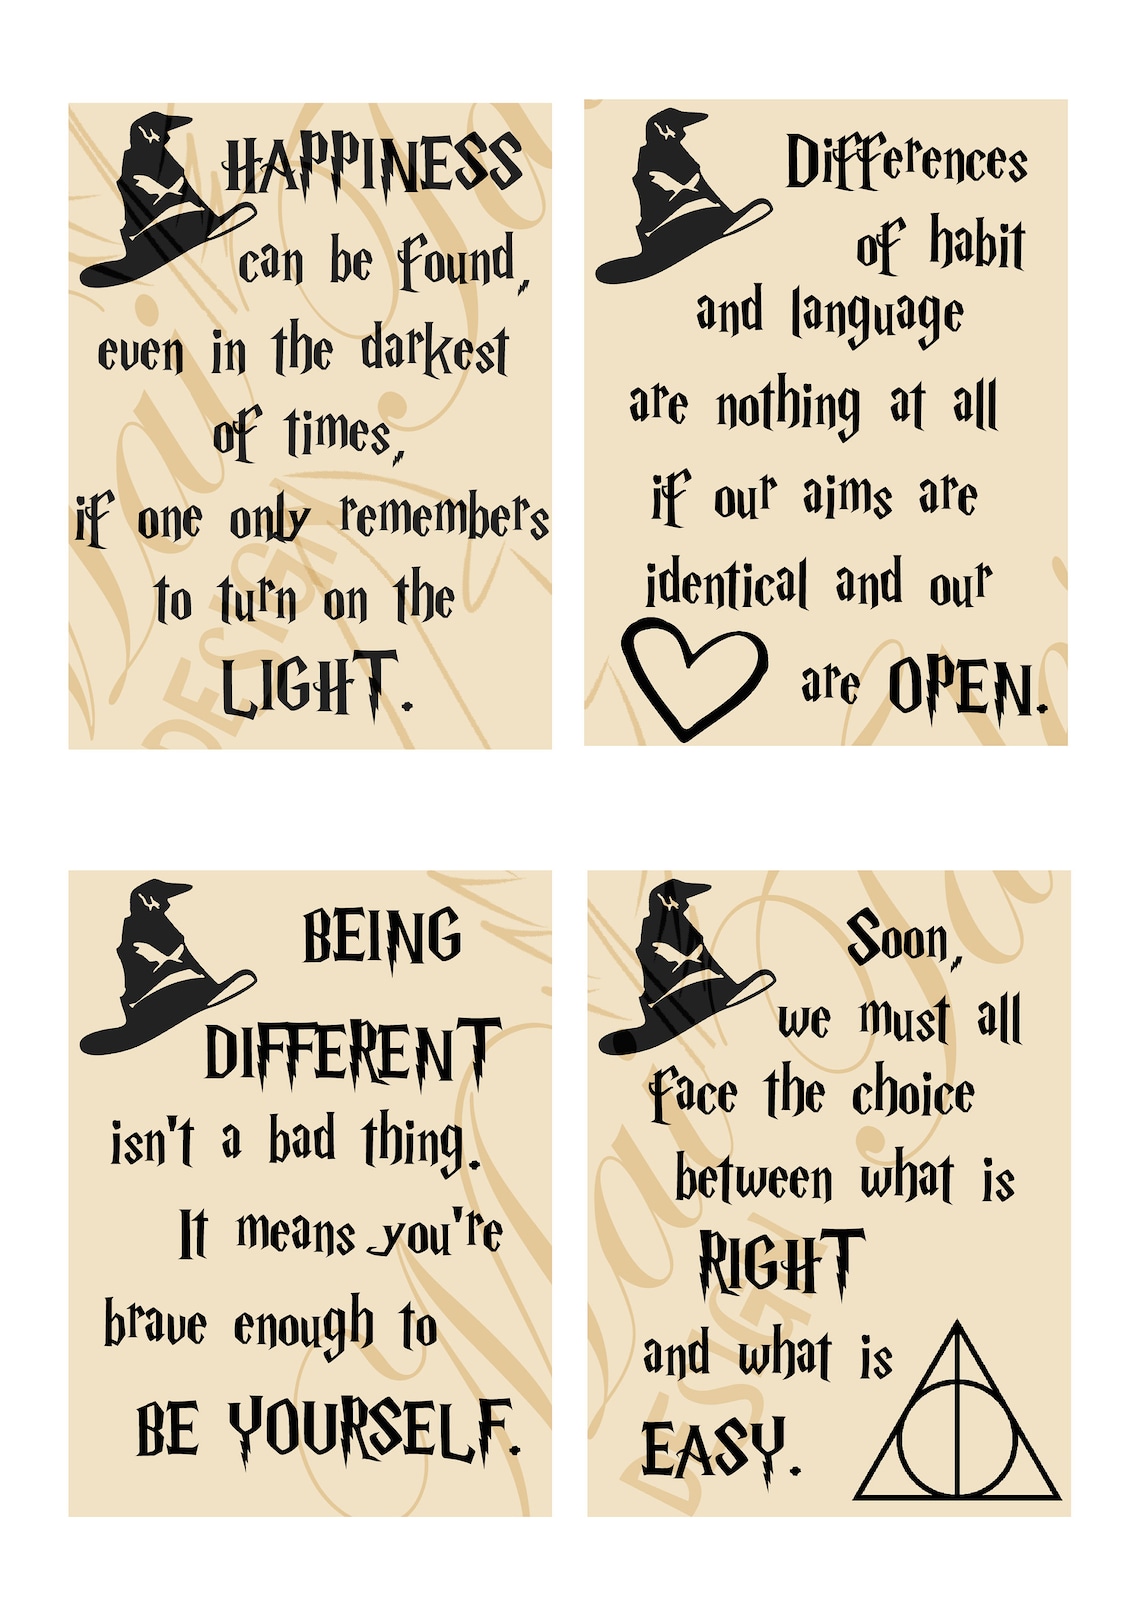 HAPPINESS
can be found,
even in the darkest
of times,
if one only remembers
to turn on the
LIGHT.
Differences
of habit
and language
are nothing at all
if our aims are
identical and our
are OPEN.
BEING
DIFFERENT
isn't a bad thing.
It means you're
brave enough to
BE YOURSELF.
Soon,
we must all
face the choice
between what is
RIGHT
and what is
EASY.
DESIGN
DESIGN